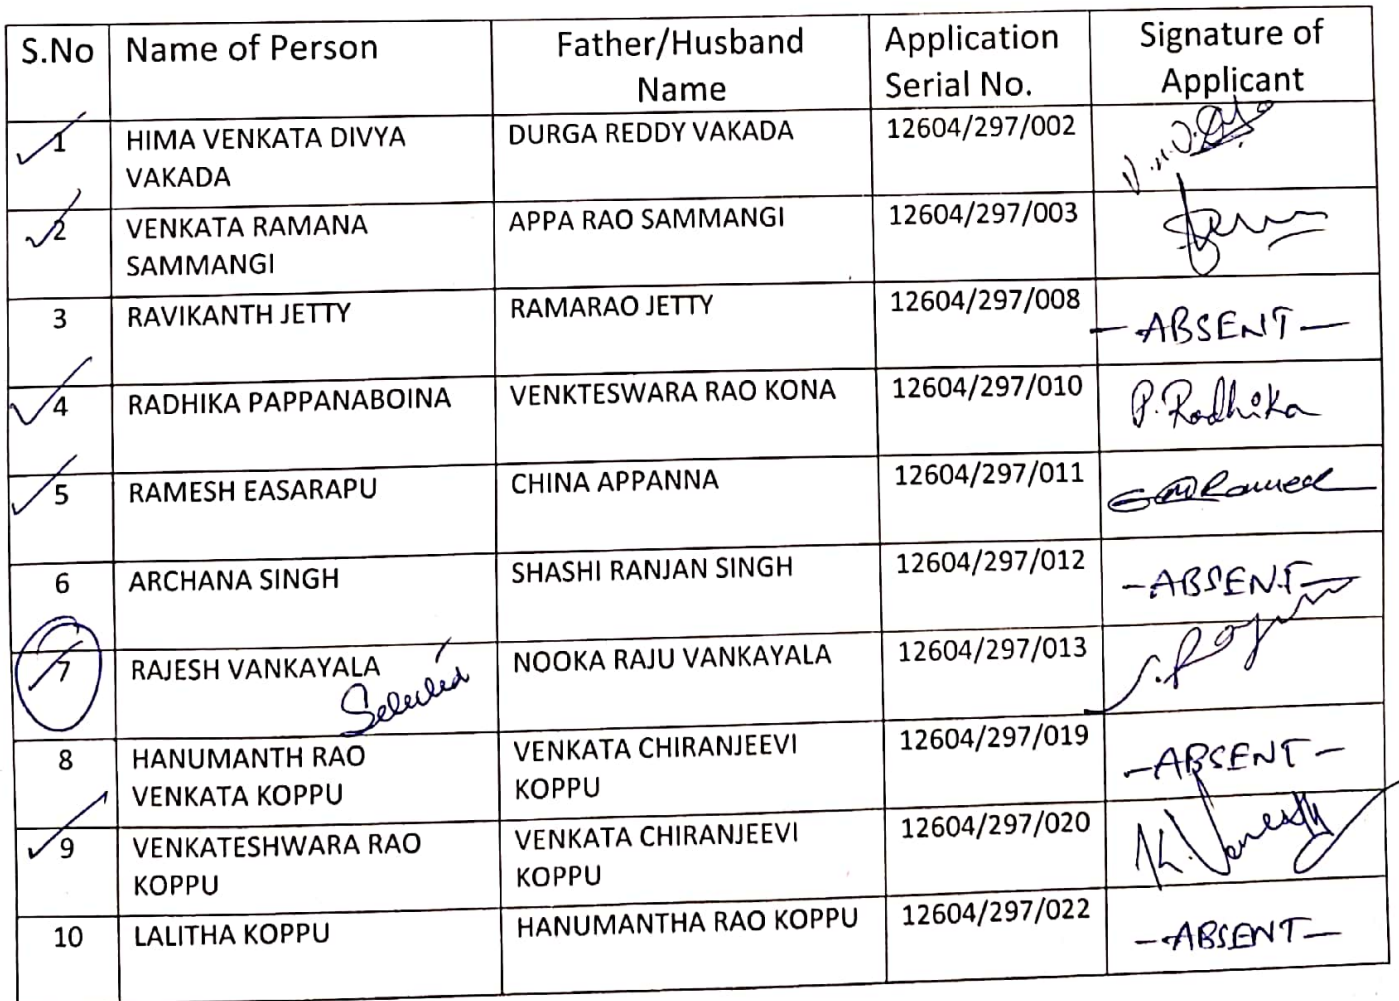 S.No Name of Person Father/Husband Name Application Serial No. Signature of Applicant
1 HIMA VENKATA DIVYA VAKADA DURGA REDDY VAKADA 12604/297/002
2 VENKATA RAMANA SAMMANGI APPA RAO SAMMANGI 12604/297/003
3 RAVIKANTH JETTY RAMARAO JETTY 12604/297/008 -ABSENT-
4 RADHIKA PAPPANABOINA VENKTESWARA RAO KONA 12604/297/010 P. Radhika
5 RAMESH EASARAPU CHINA APPANNA 12604/297/011
6 ARCHANA SINGH SHASHI RANJAN SINGH 12604/297/012 -ABSENT-
7 RAJESH VANKAYALA Selected NOOKA RAJU VANKAYALA 12604/297/013
8 HANUMANTH RAO VENKATA KOPPU VENKATA CHIRANJEEVI KOPPU 12604/297/019 -ABSENT-
9 VENKATESHWARA RAO KOPPU VENKATA CHIRANJEEVI KOPPU 12604/297/020
10 LALITHA KOPPU HANUMANTHA RAO KOPPU 12604/297/022 -ABSENT-